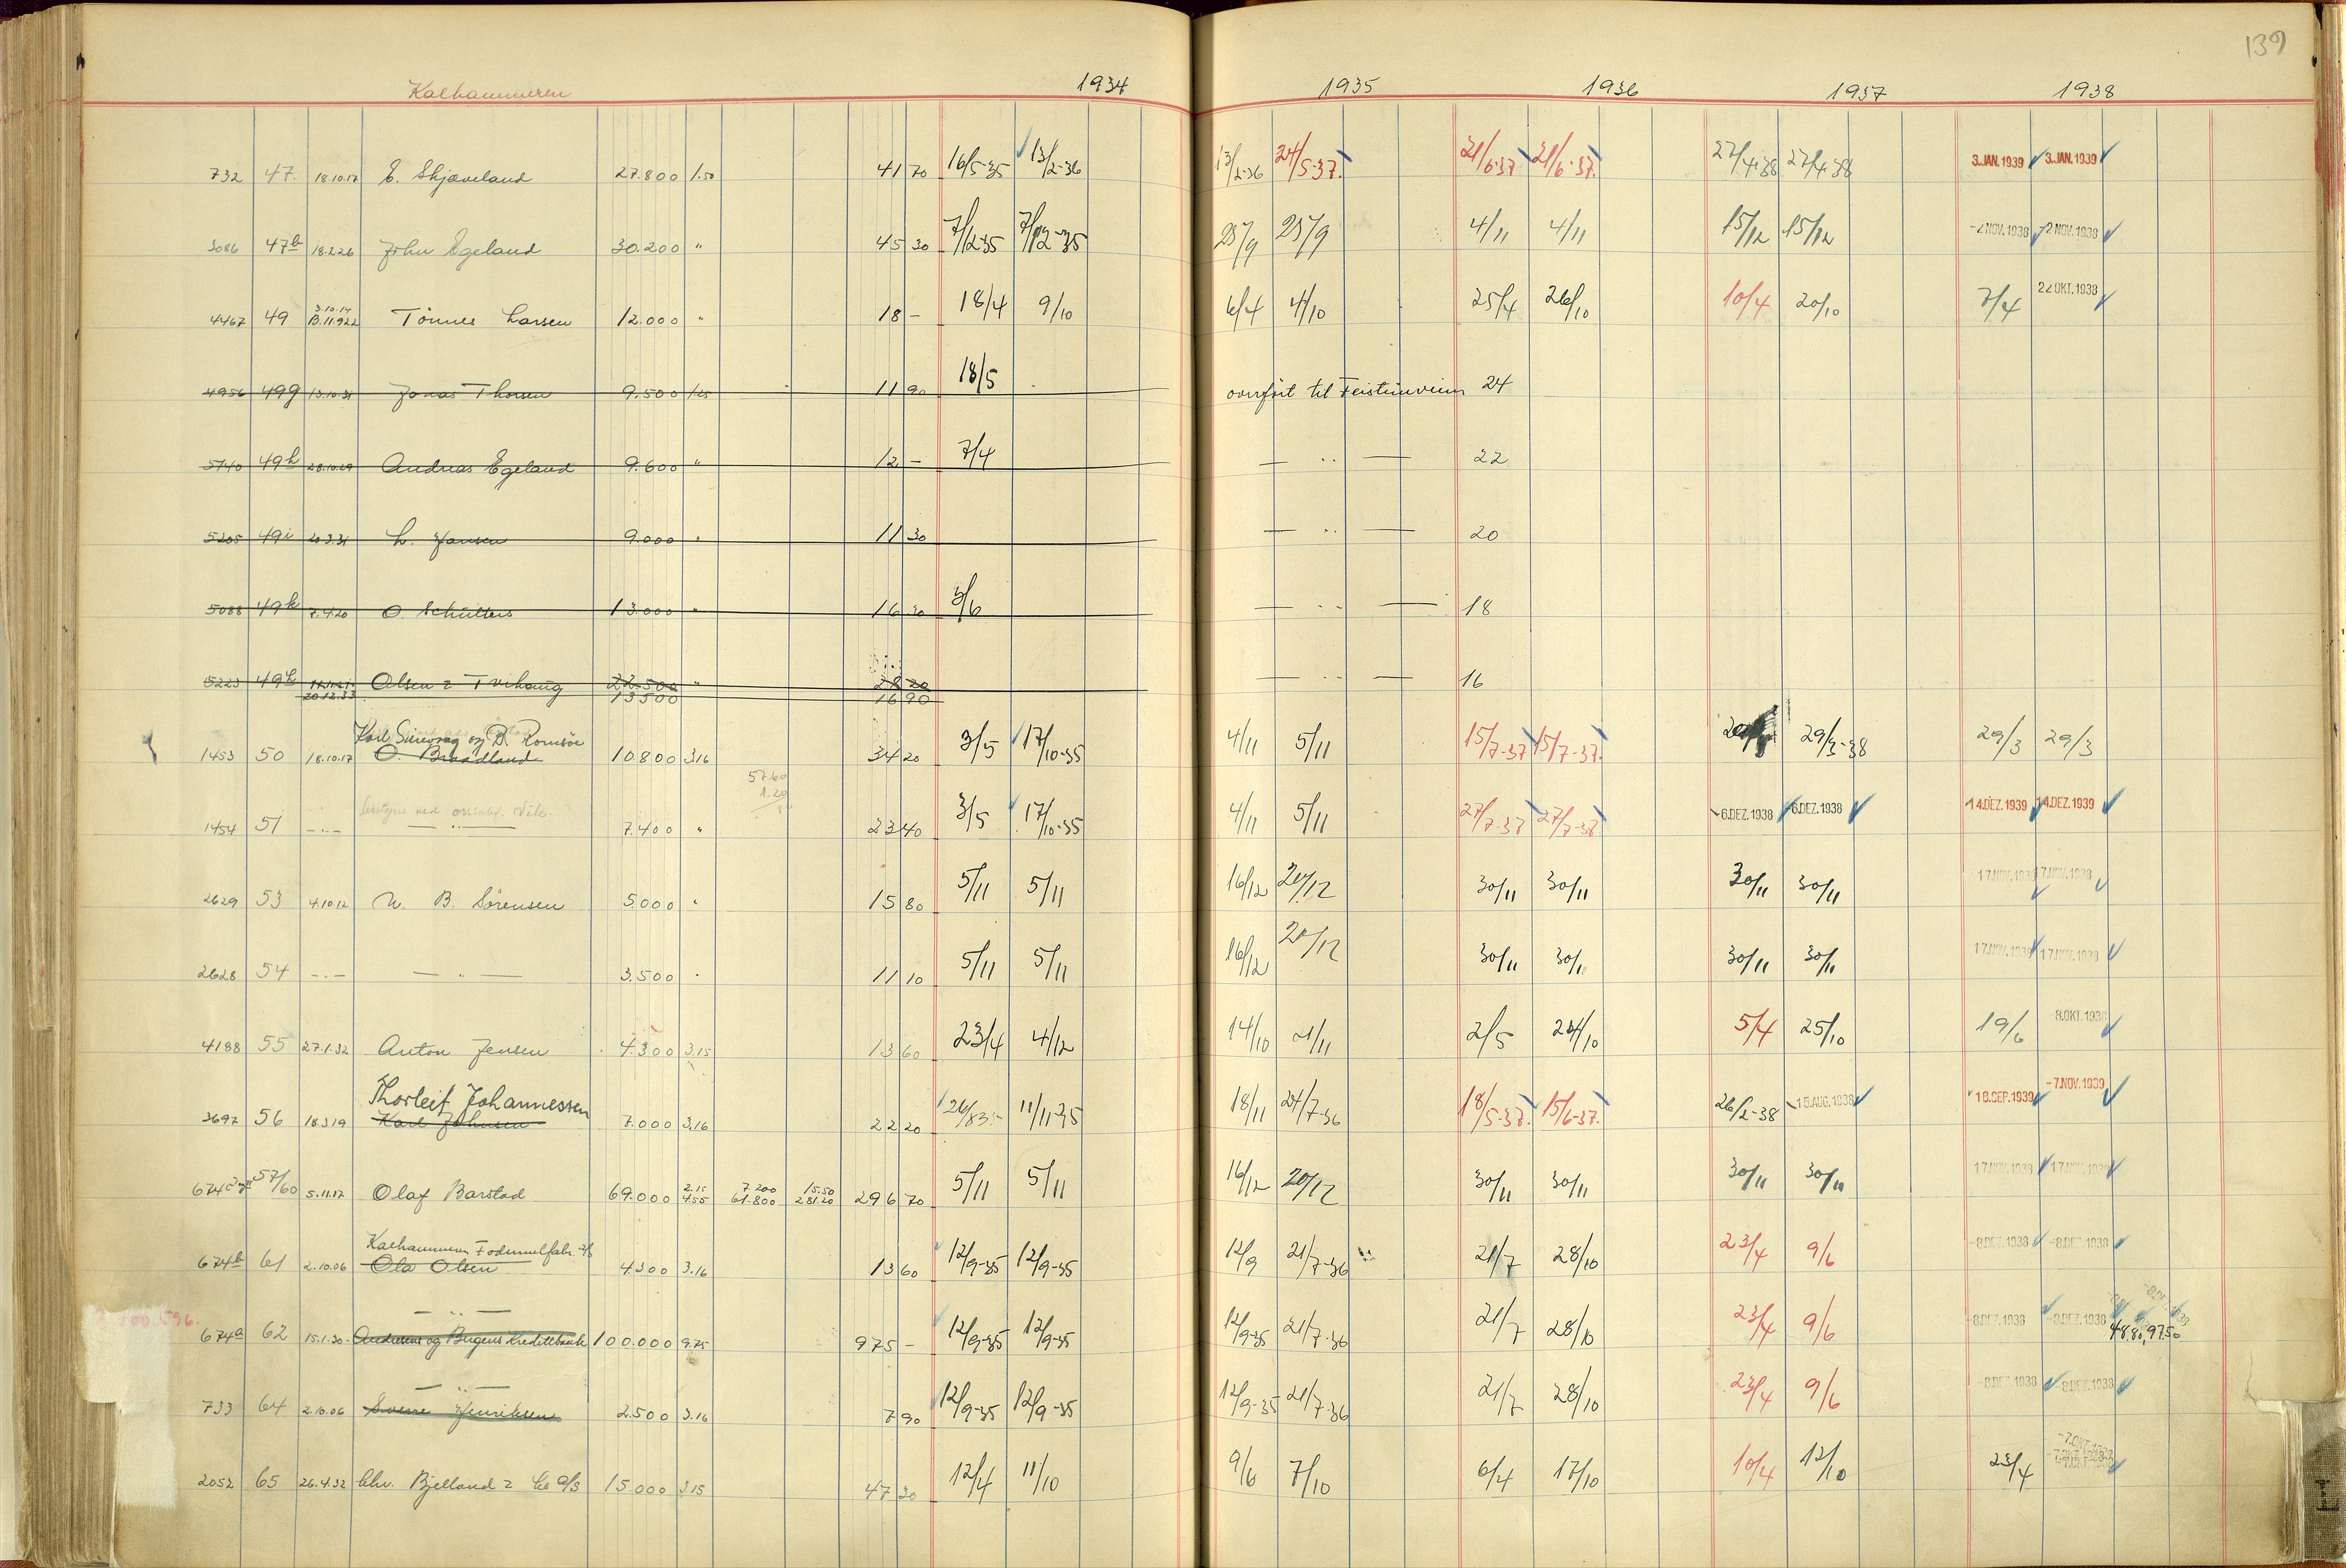 139
Kalhammeren 1934 1935 1936 1937 1938
732 47. 18.10.17 E. Skjæveland 27.800 1.50 41 70 16/5-35 13/2-36 13/2-36 24/5-37. 21/6-37 21/6-37. 27/4-38 27/4-38 3.JAN.1939 3.JAN.1939
3086 47b 18.2.26 John Egeland 30.200 " 45 30 7/12-35 7/12-35 25/9 25/9 4/11 4/11 15/12 15/12 -2.NOV.1938 -2.NOV.1938
4467 49 3.10.14 B.11.922 Tönnes Larsen 12.000 " 18 - 18/4 9/10 6/4 4/10 25/4 26/10 10/4 20/10 7/4 22.OKT.1938
4956 49g 13.10.31 Jonas Thorsen 9.500 1.25 11 90 18/5 overfört til Feisteinveien 24
5140 49h 28.10.29 Andreas Egeland 9.600 " 12 - 7/4 — " — 22
5205 49i 20.3.31 L. Jansen 9.000 " 11 30 — " — 20
5088 49k 7.4.20 O. Schulters 13.000 " 16 30 5/6 — " — 18
5223 49l 20.12.33 Olsen & Tvihaug 22.500 " 28 20 — " — 16
13500 16 90
Karl Sirevåg og B. Romsöe
1453 50 18.10.17 O. Braadland 10.800 3.16 34 20 3/5 17/10-35 4/11 5/11 15/7-37 15/7-37. 29/3-38 29/3 29/3
57.60
1.20
1454 51 — " — — " — 7.400 " 23 40 3/5 17/10-35 4/11 5/11 27/7-38 27/7-38 -6.DEZ.1938 -6.DEZ.1938 14.DEZ.1939 14.DEZ.1939
2629 53 4.10.12 N. B. Sörensen 5.000 " 15 80 5/11 5/11 16/12 20/12 30/11 30/11 30/11 30/11 17.NOV.1938 17.NOV.1938
2628 54 — " — — " — 3.500 " 11 10 5/11 5/11 16/12 20/12 30/11 30/11 30/11 30/11 17.NOV.1938 17.NOV.1938
4188 55 27.1.32 Anton Jensen 4.300 3.15 13 60 23/4 4/12 14/10 21/11 2/5 24/10 5/4 25/10 19/6 8.OKT.1938
Thorleif Johannessen
3697 56 18.3.19 Karl Johnsen 7.000 3.16 22 20 26/8 35 11/11-35 18/11 24/7-36 18/5-37. 15/6-37. 26/2-38 15.AUG.1938 18.SEP.1939 -7.NOV.1939
674 57/60 5.11.17 Olaf Barstad 69.000 2.15 4.55 7.200 61.800 15.50 281.20 296 70 5/11 5/11 16/12 20/12 30/11 30/11 30/11 30/11 17.NOV.1938 17.NOV.1938
Kalhammeren Fodermelfabr. A/S
674b 61 2.10.06 Ola Olsen 4.300 3.16 13 60 12/9-35 12/9-35 12/9 21/7-36 21/7 28/10 23/4 9/6 -8.DEZ.1938 -8.DEZ.1938
— " —
674a 62 15.1.30. Andresens og Bergens Kreditbank 100.000 9.75 975 - 12/9-35 12/9-35 12/9-35 21/7-36 21/7 28/10 23/4 9/6 -8.DEZ.1938 -8.DEZ.1938
— " —
733 64 2.10.06 Sverre Henriksen 2.500 3.16 7 90 12/9-35 12/9-35 12/9-35 21/7-36 21/7 28/10 23/4 9/6 -8.DEZ.1938 -8.DEZ.1938
2052 65 26.4.32 Chr. Bjelland & Co A/S 15.000 3.15 47 30 12/4 11/10 9/6 7/10 6/4 17/10 10/4 12/10 23/4 -7.OKT.1938